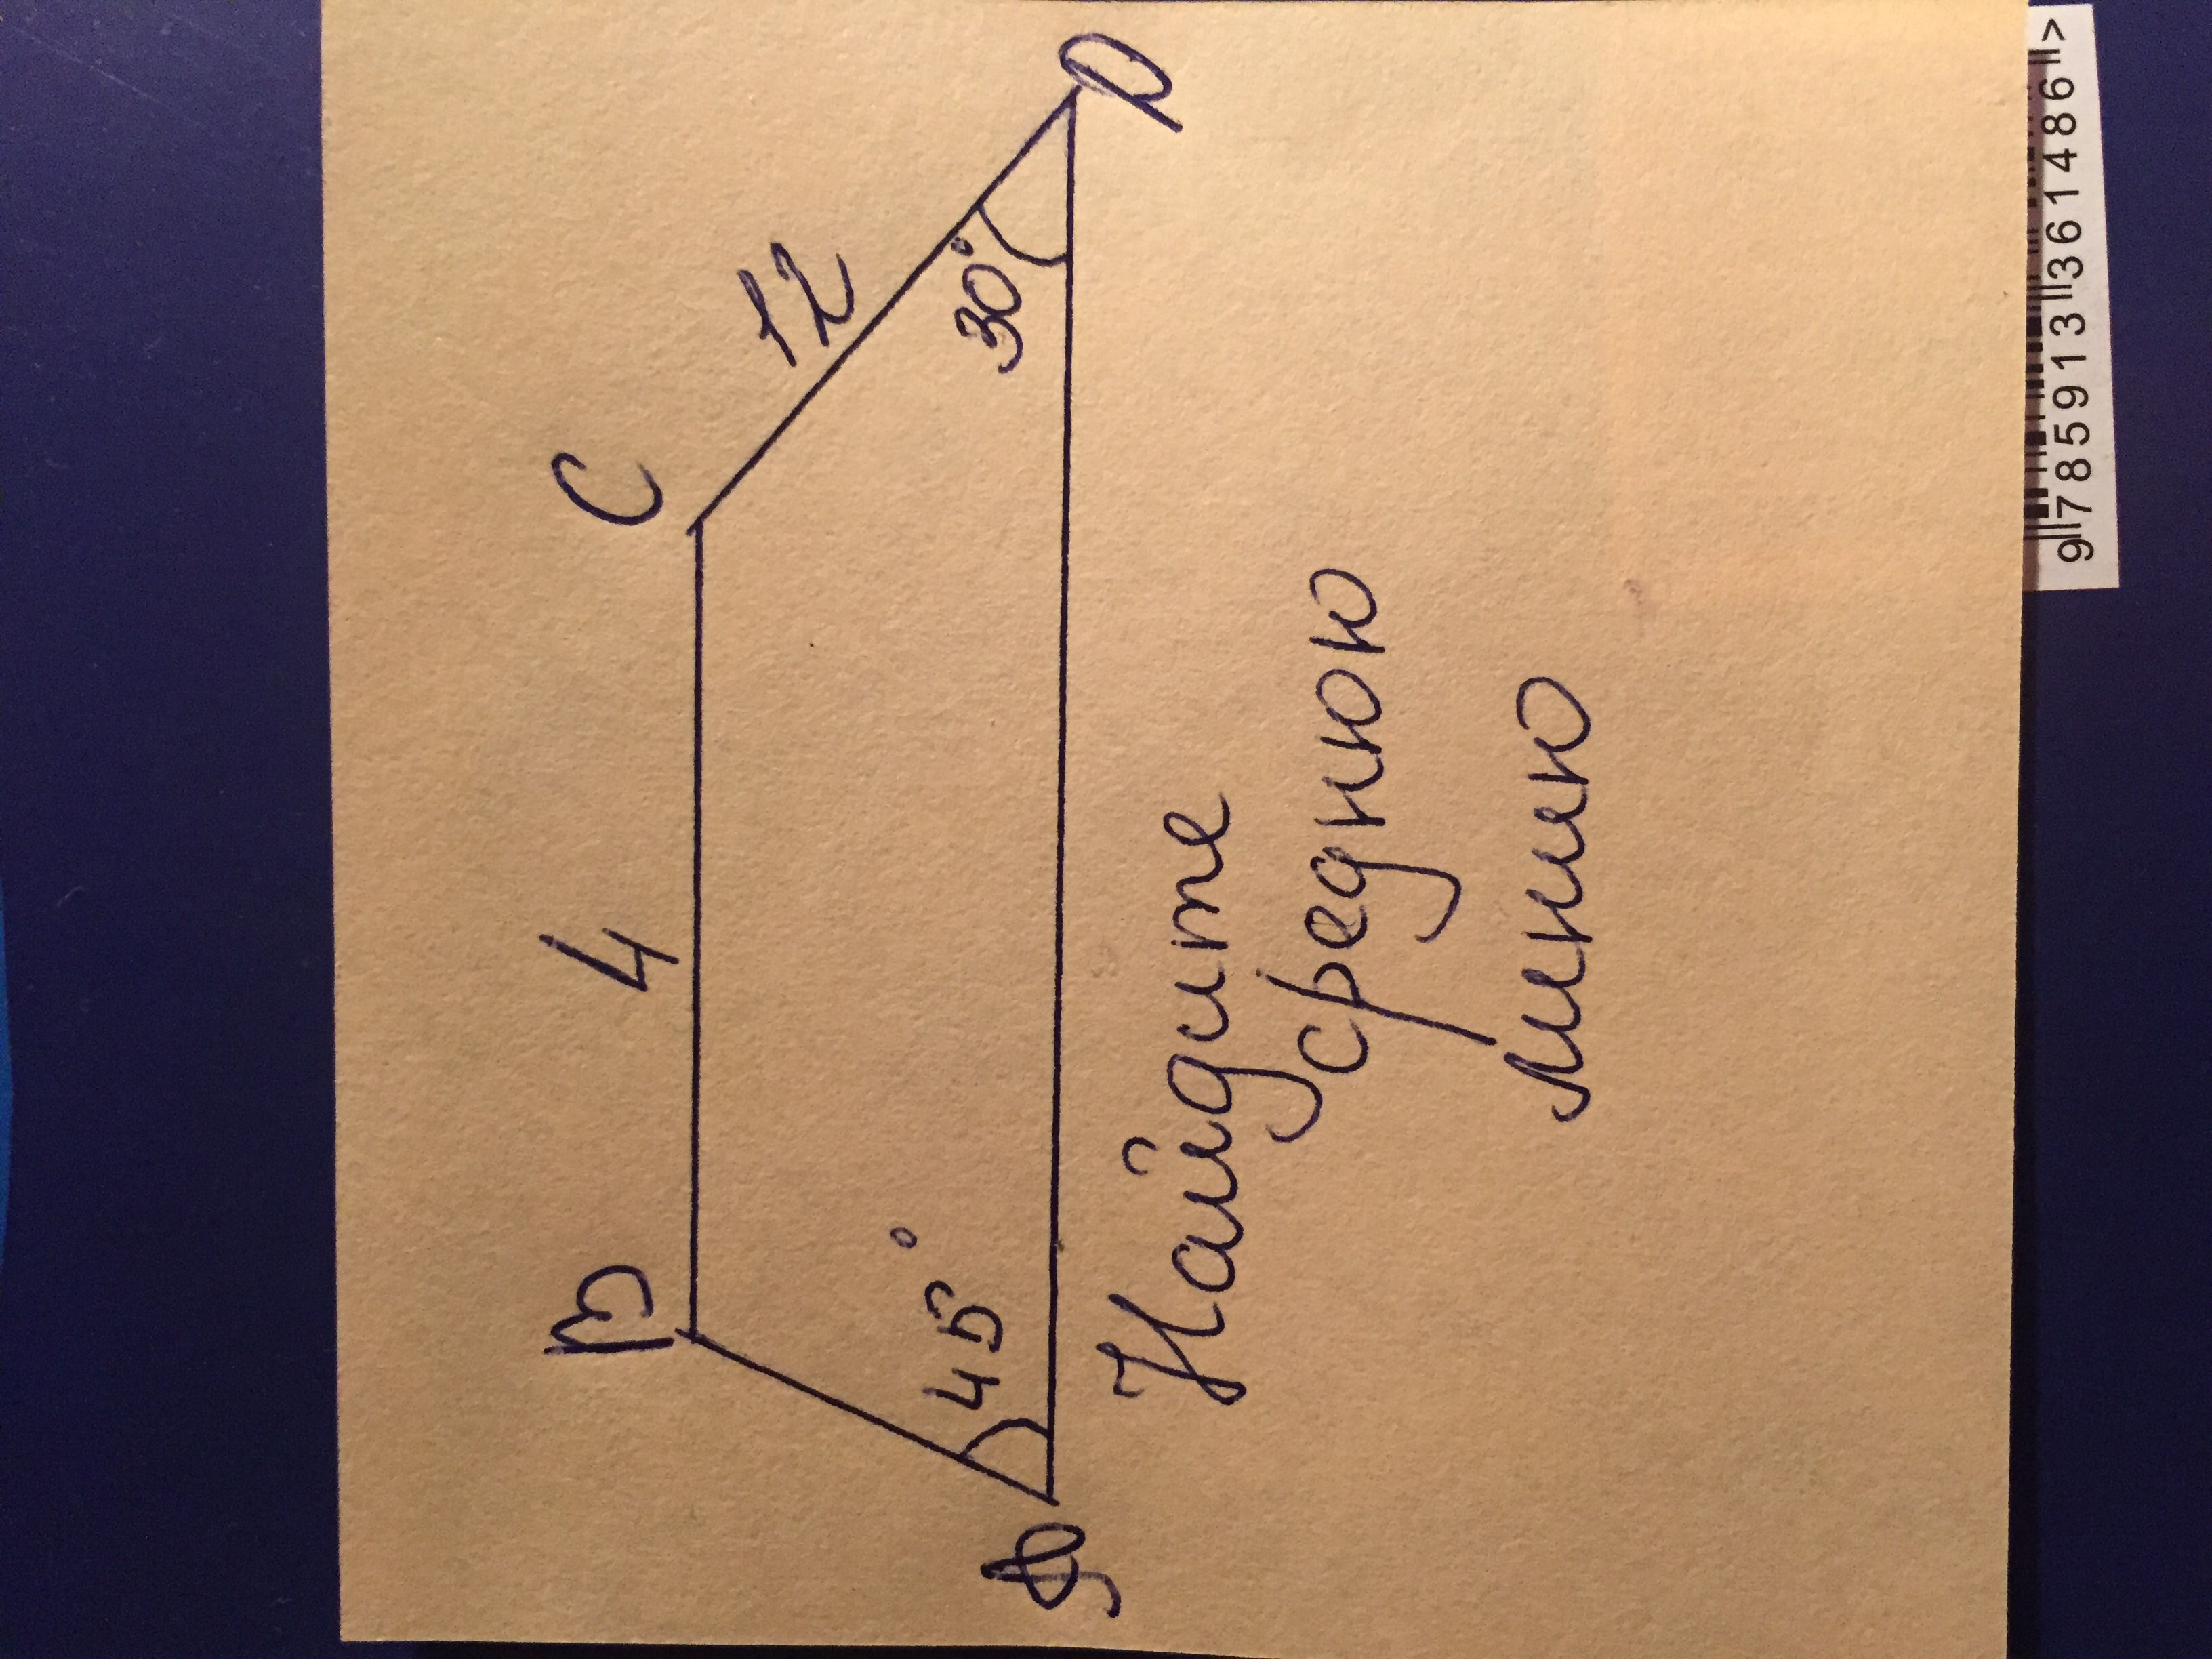 B 4 C
12
A 45° 30° D
Найдите
среднюю
линию
9 785913 361486 >